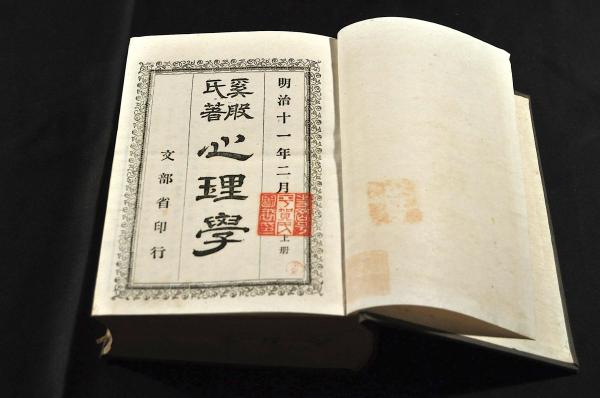 明治十一年二月
上册
奚般
氏著
心理學
文部省印行